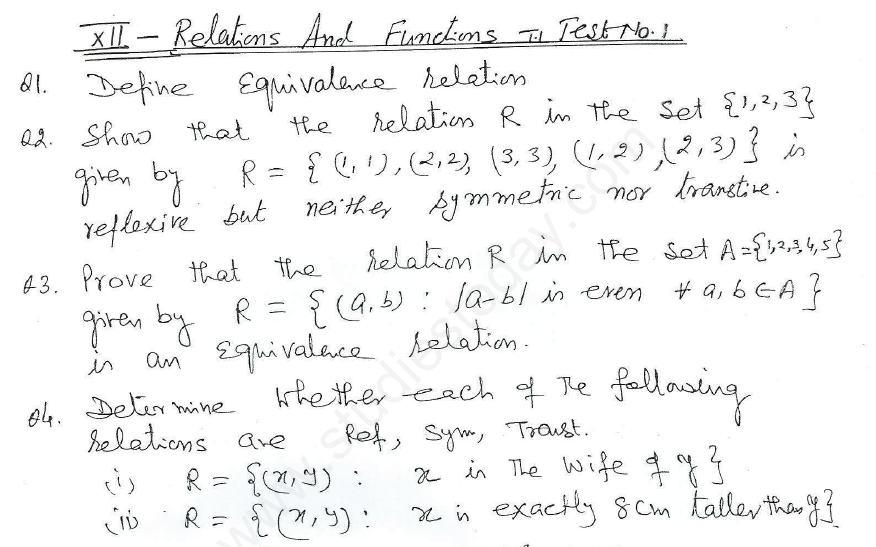 XII - Relations And Functions T-1 Test No. 1
Q1. Define Equivalence relation
Q2. Show that the relation R in the set {1,2,3}
given by R = {(1,1), (2,2), (3,3), (1,2), (2,3)} is
reflexive but neither symmetric nor transtive.
Q3. Prove that the relation R in the set A={1,2,3,4,5}
given by R = {(a,b) : |a-b| is even ∀ a, b ∈ A}
is an Equivalence relation.
Q4. Determine whether each of the following
relations are Ref, Sym, Transt.
(i) R = {(x,y) : x is the wife of y}
(ii) R = {(x,y) : x is exactly 8cm taller than y}
www.studiestoday.com